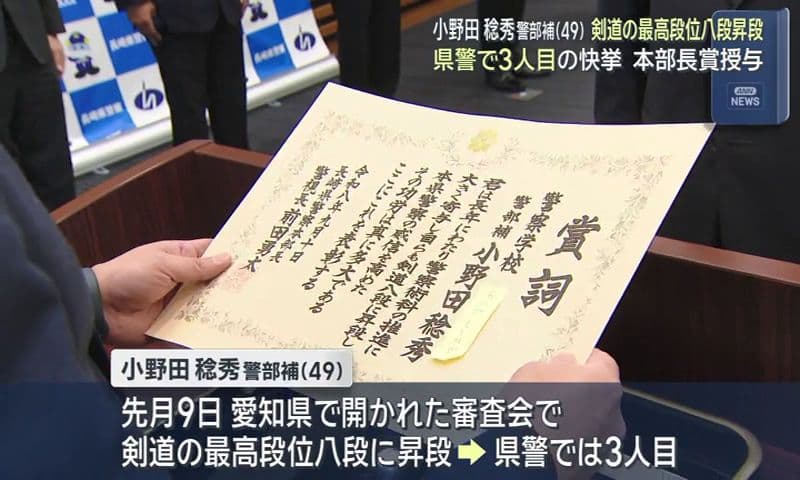 小野田 稔秀 警部補(49) 剣道の最高段位八段昇段
県警で3人目の快挙 本部長賞授与
ANN
NEWS
長崎県警察
長崎県警察
賞詞
警察学校
警部補 小野田稔秀
君は長年にわたり警察術科の推進に
大きく寄与し自らも剣道八段に昇段し
本県警察の威信を高めた
その功労は真に多大である
ここにこれを表彰する
長崎県警察本部長
警視長 前田勇太
小野田 稔秀 警部補(49)
先月9日 愛知県で開かれた審査会で
剣道の最高段位八段に昇段➡県警では3人目